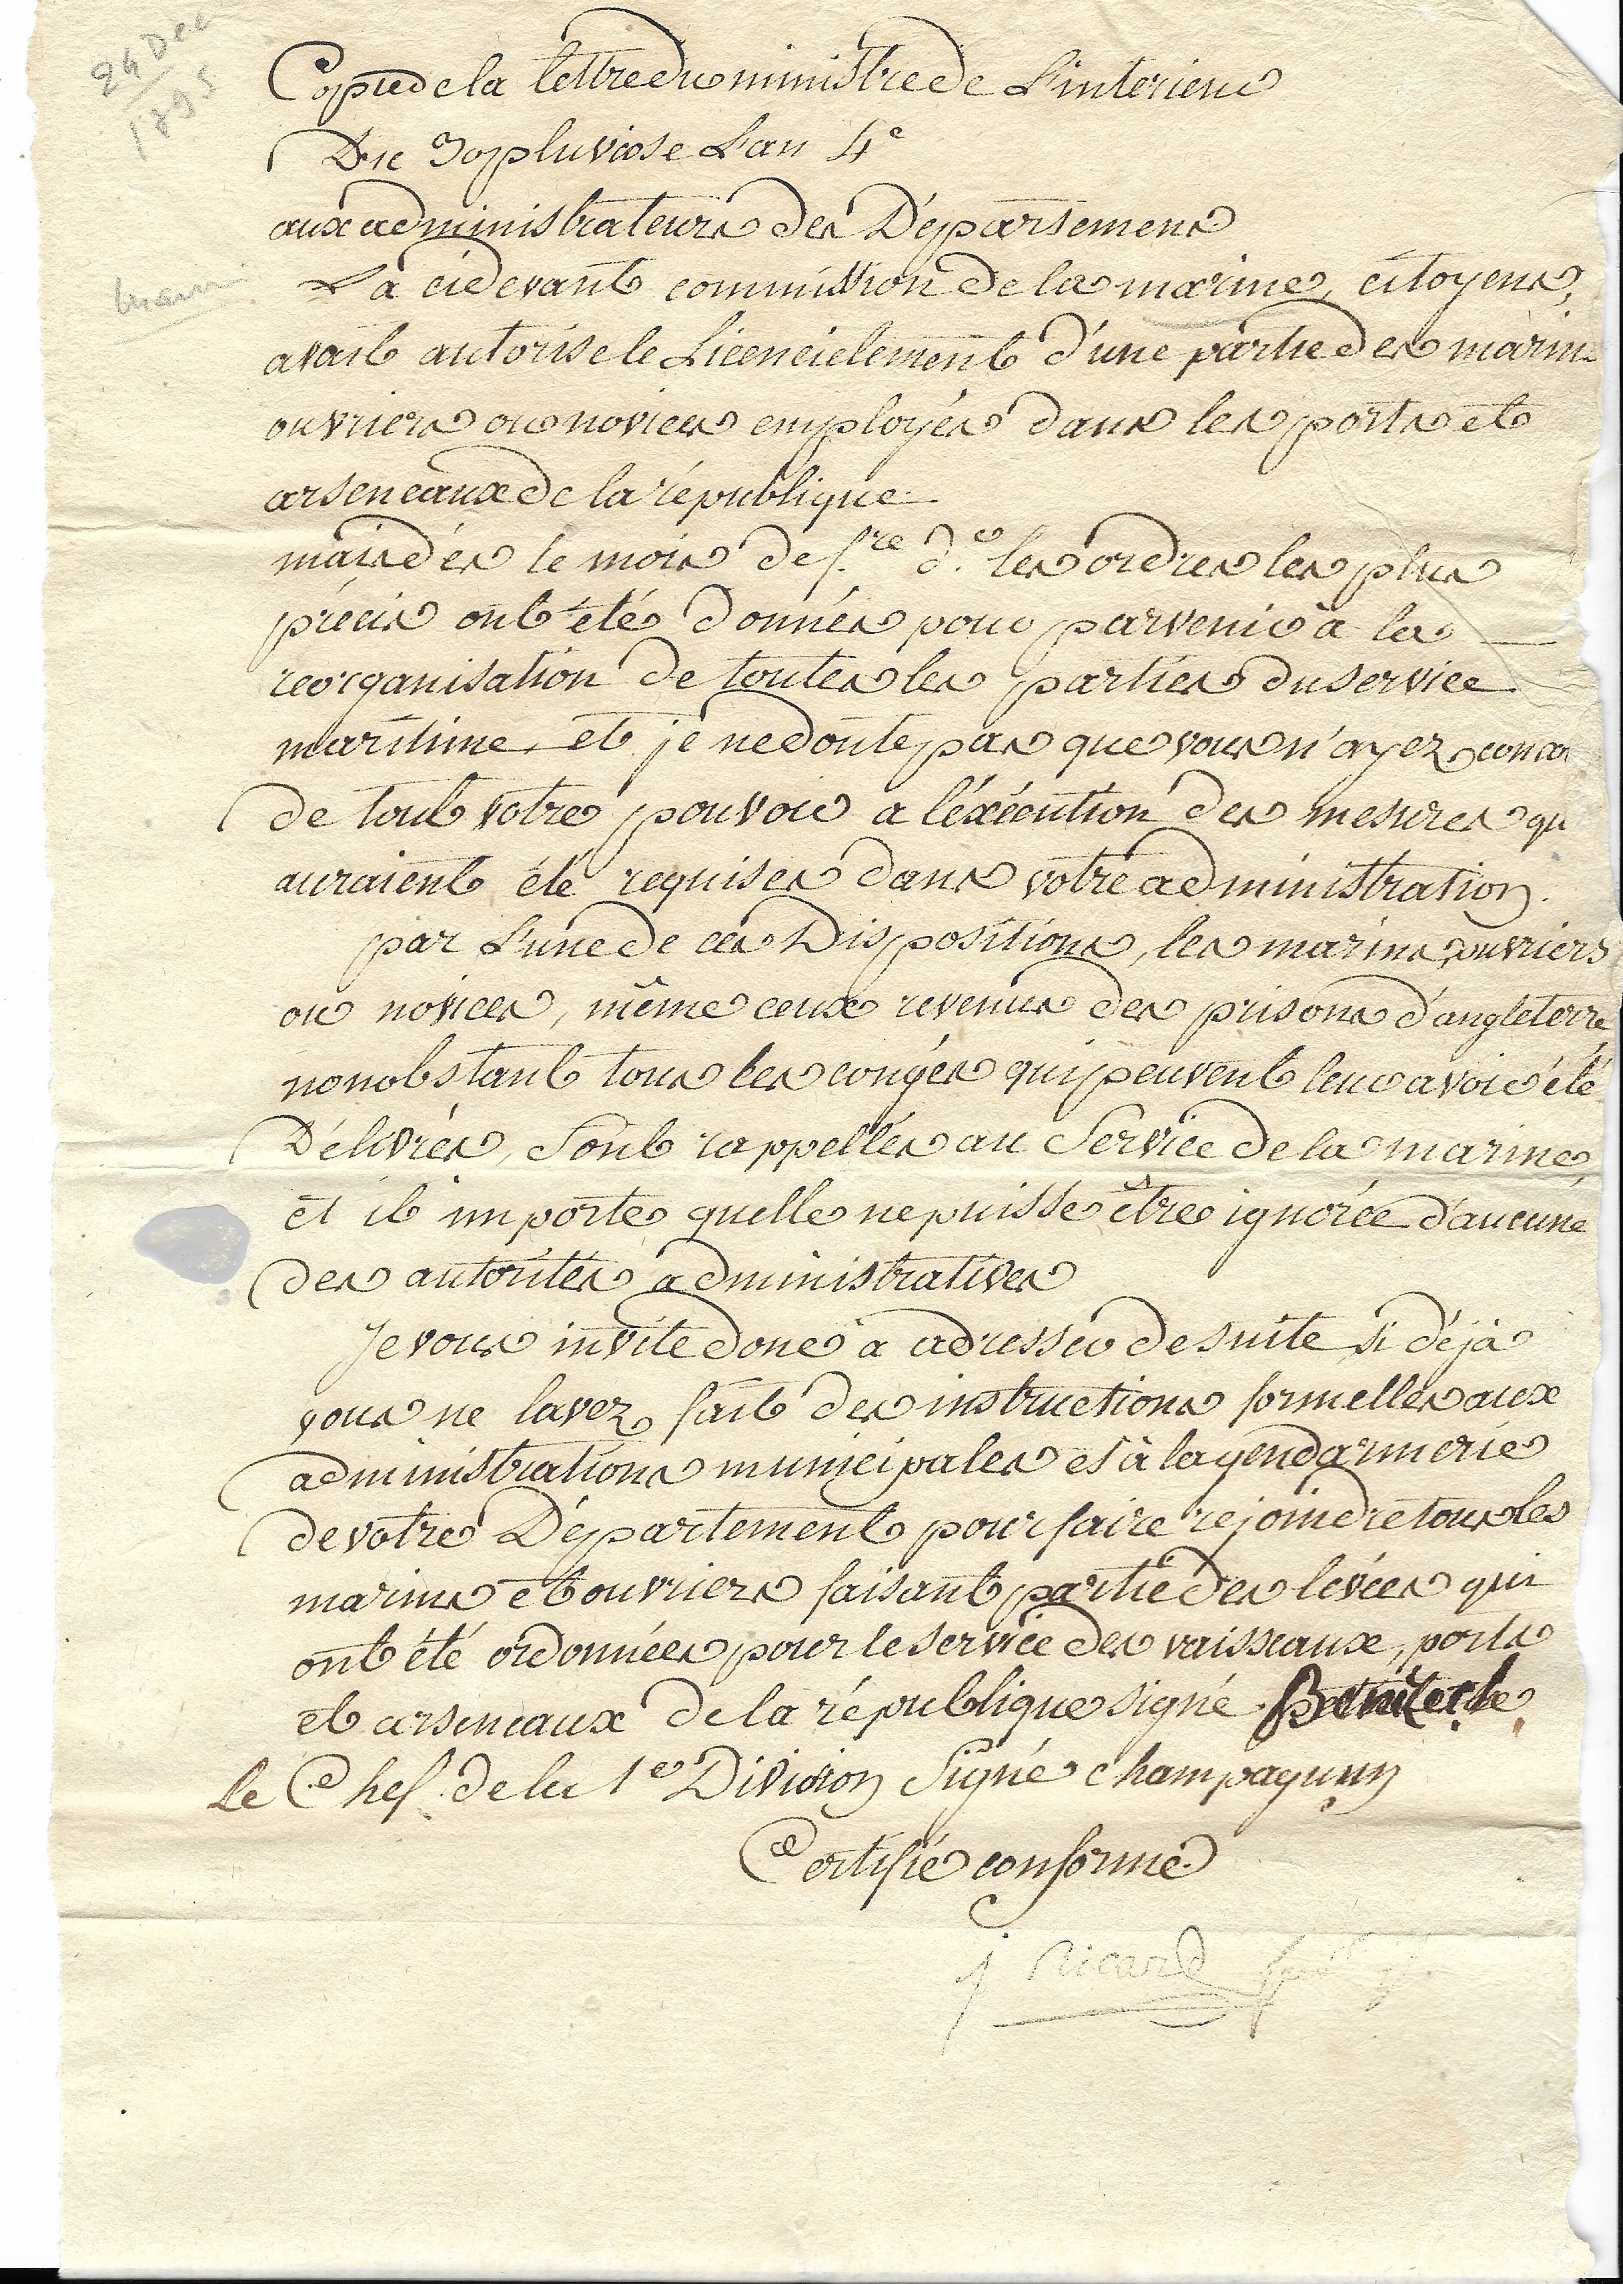 24 Dec
1895
Copie de la lettre du ministre de L'interieur
Du 30 pluviose L'an 4e
aux administrateurs des Départemens
La cidevant commission de la marine, citoyens,
avait autorisé le Licenciement d'une partie des marin
ouvriers ou novices employés dans les ports et
arseneaux de la république
mais dès le mois de f.re d.er les ordres les plus
précis ont été donnés pour parvenir à la
reorganisation de toutes les parties du service
maritime, et je ne doute pas que vous n'ayez conco
de tout votre pouvoir a l'éxécution des mesures qu
auraient été requises dans votre administration.
par L'une de ces Dispositions, les marins, ouvriers
ou novices, même ceux revenus des prisons d'angleterre
nonobstant tous les congés qui peuvent leur avoir été
Délivrés, Sont rappellés au Service de la marine,
et il importe quelle ne puisse être ignorée d'aucune
des autorités administratives
Je vous invite donc a adresser de suite, si déjà
vous ne lavez fait des instructions formelles aux
administrations municipales et à la gendarmerie
de votre Département pour faire rejoindre tous les
marins et ouvriers faisant partie des levées qui
ont été ordonnées pour le service des vaisseaux, ports
et arseneaux de la république signé Benezech
Le Chef de la 1e Division Signé champagny
Certifié conforme
J Ricard